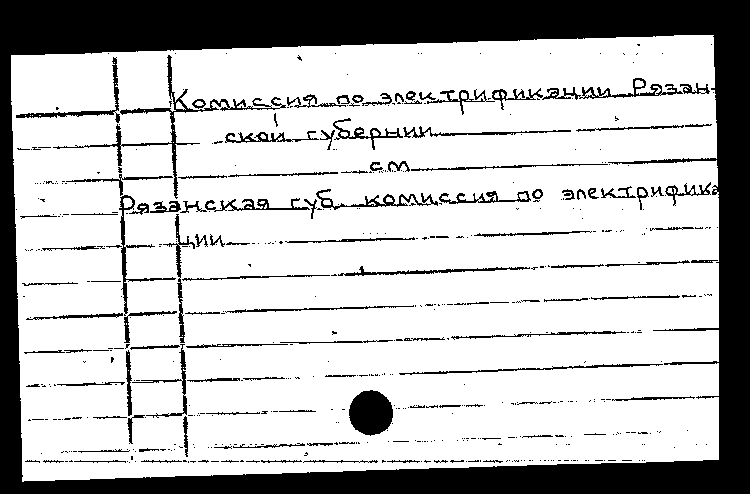 Комиссия по электрификации Рязан-
ской губернии
см
Рязанская губ. комиссия по электрифика
ции